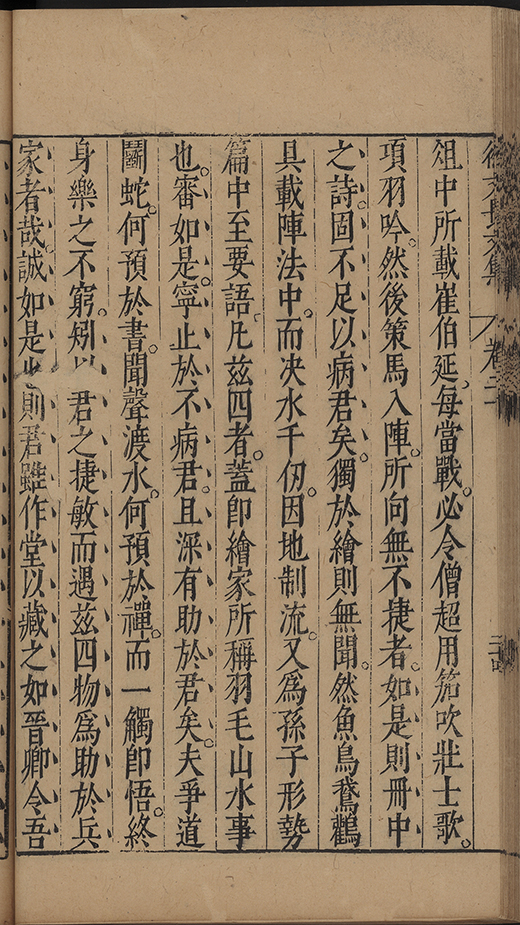 徐文長文集 卷二十 二高
俎中所載崔伯延。每當戰。必令僧超用笳吹壯士歌。
項羽吟。然後策馬入陣。所向無不捷者。如是則冊中
之詩。固不足以病君矣。獨於繪則無聞。然魚鳥鵞鸛
具載陣法中。而决水千仞。因地制流。又爲孫子形勢
篇中至要語。凡兹四者。蓋卽繪家所稱羽毛山水事
也。審如是。寧止於不病君。且深有助於君矣。夫爭道
鬬蛇。何預於書。聞聲渡水。何預於禪。而一觸卽悟。終
身樂之不窮。矧以君之捷敏而遇兹四物爲助於兵
家者哉。誠如是也則君雖作堂以藏之如晉卿令吾